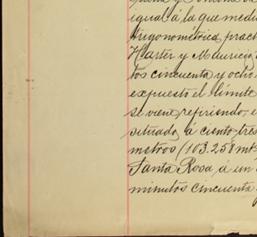 igual á la que media
trigonométrica, prac
Harter y Mauricio
tos cincuenta y ocho
expuesto el límite
se viene refiriendo, e
situado, á ciento tres
metros (103.258 mt
Santa Rosa á un
minutos cincuenta